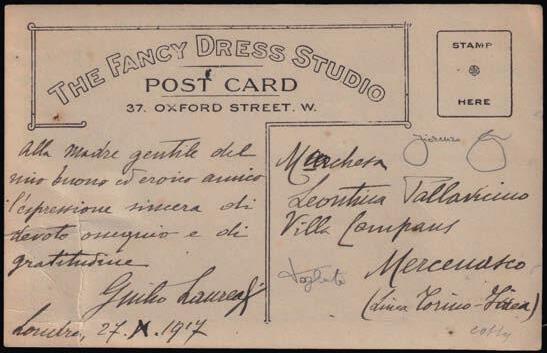 THE FANCY DRESS STUDIO
POST CARD
37. OXFORD STREET. W.
STAMP
HERE
Alla Madre gentile del
mio buono ed eroico amico
l'espressione sincera di
devoto ossequio e di
gratitudine
Giulio
Londra, 27. X. 1917
Marchesa
Leontina Pallavicino
Villa Campans
Mercenasco
(Linea Torino-Ivrea)